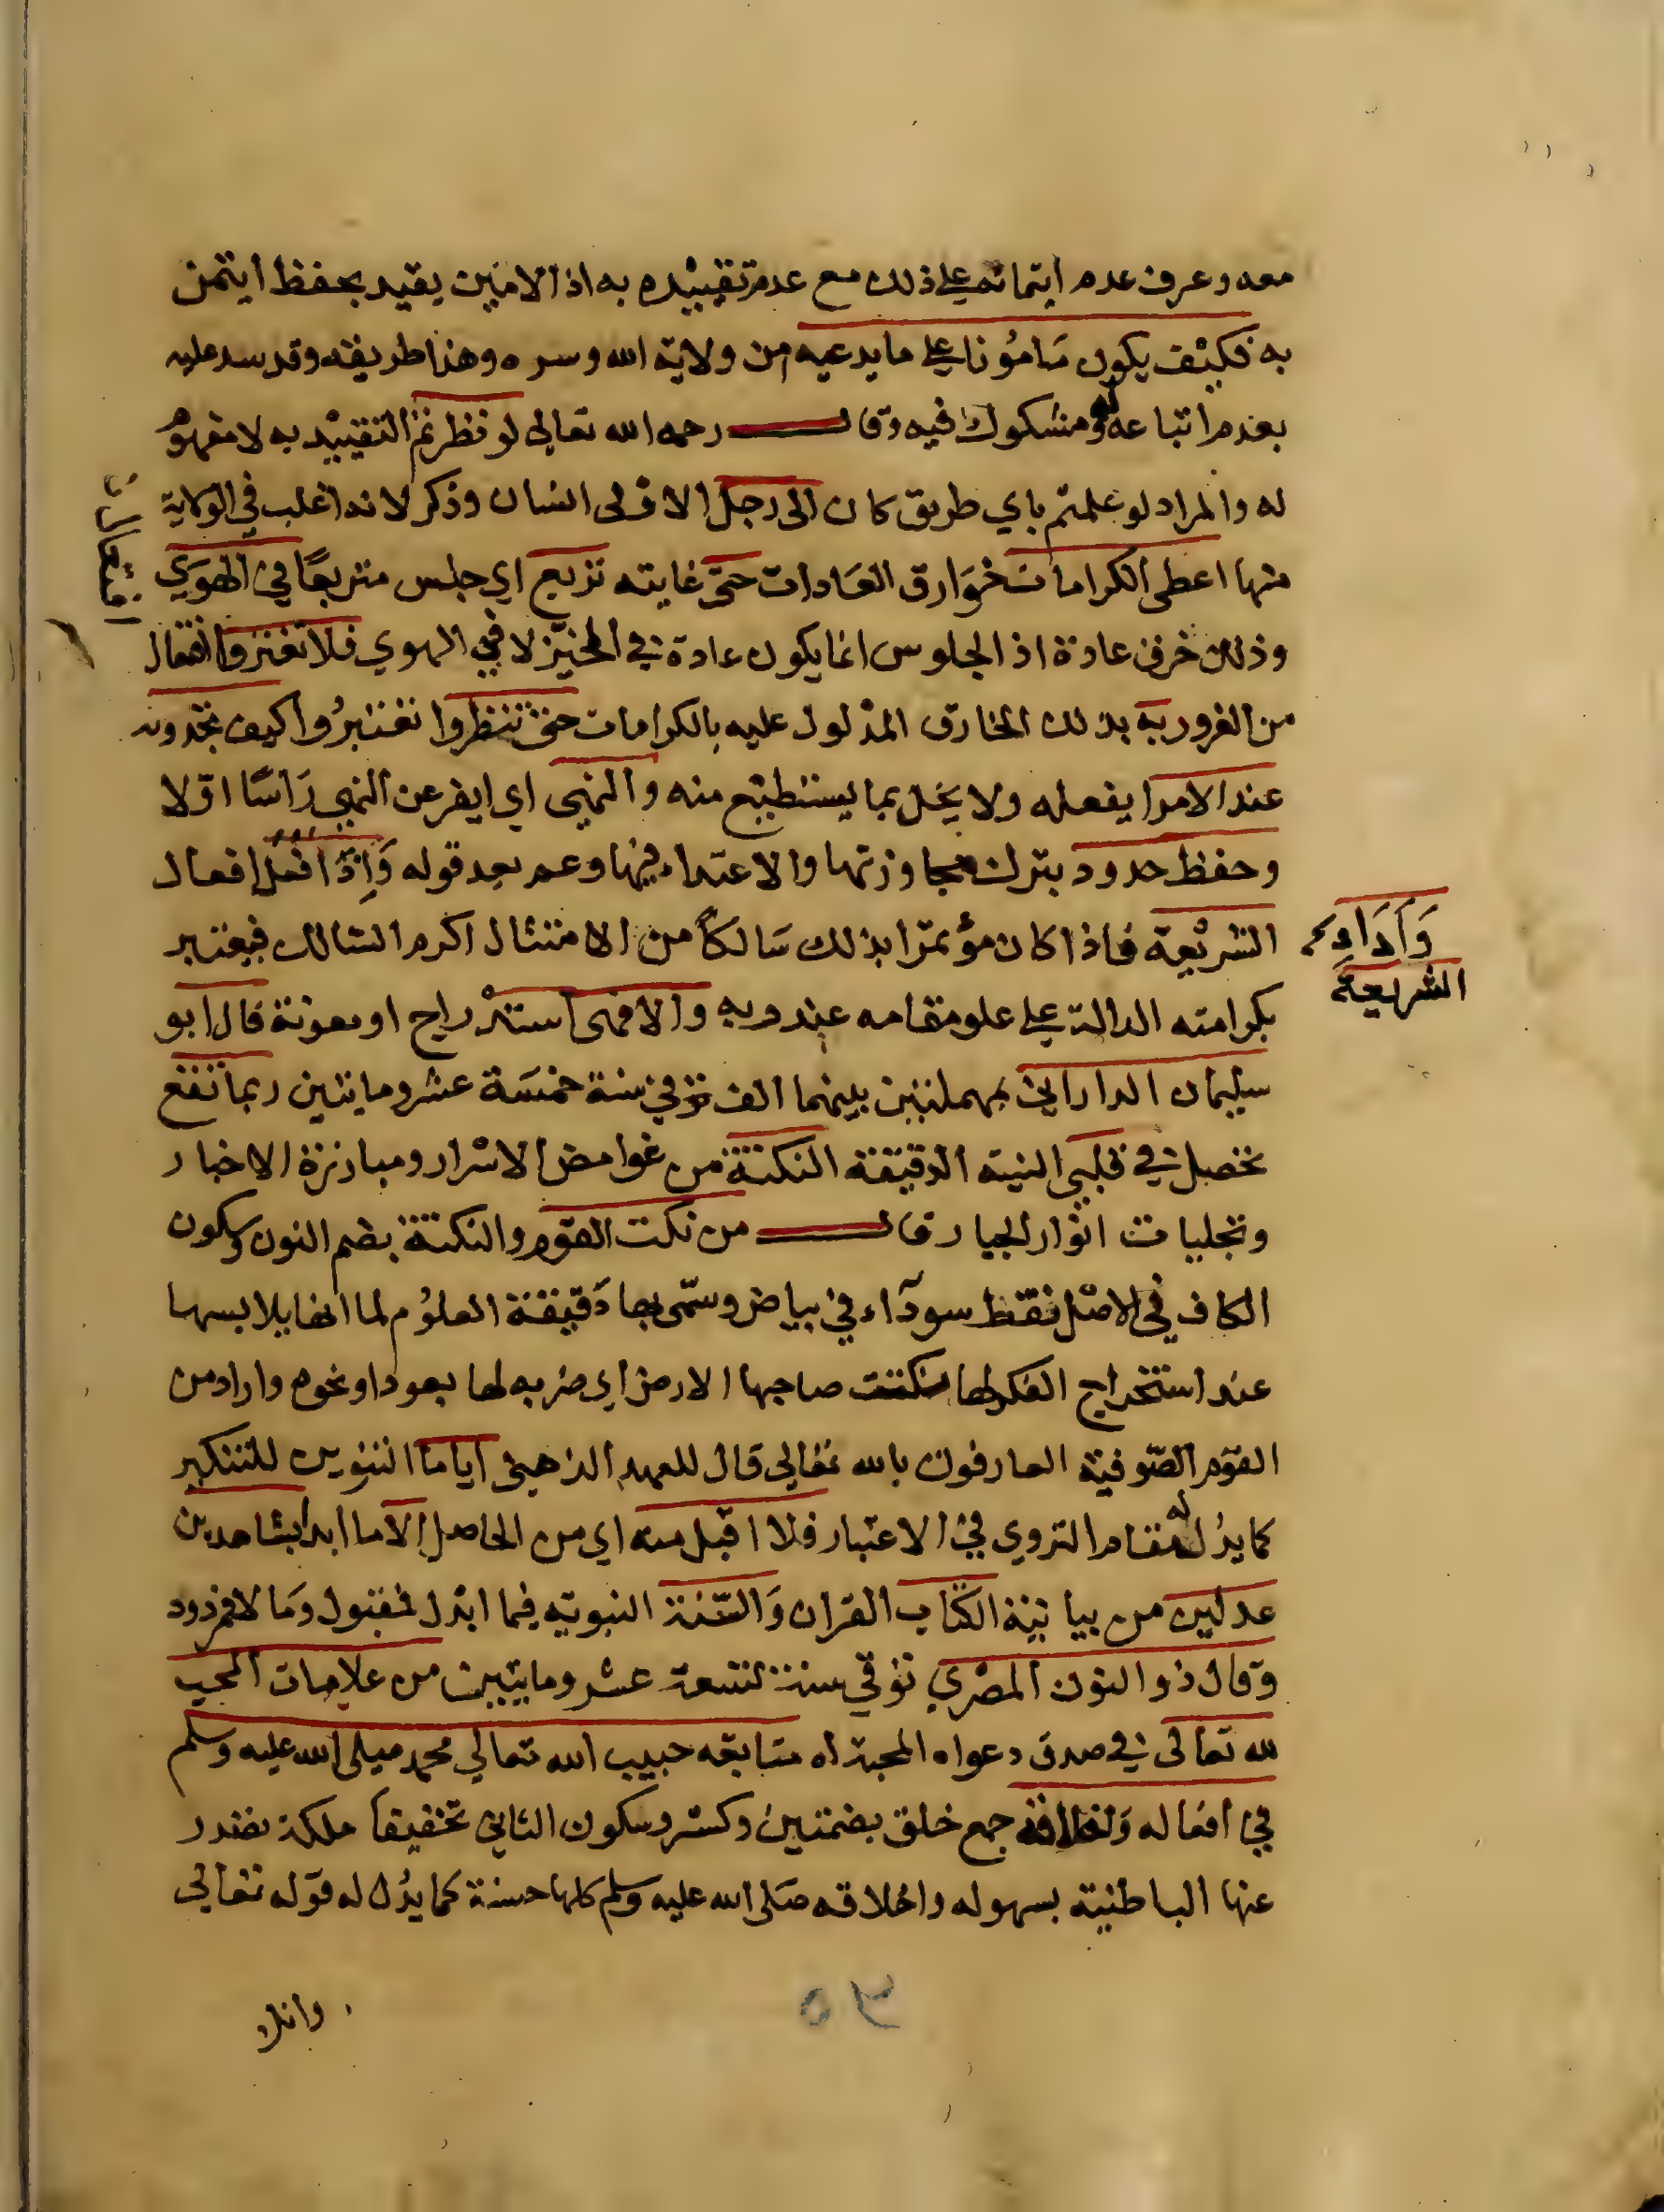 معه وعرف عدم ائتمانه على ذلك مع عدم تقييده به اذ الامين يقيد بحفظ ايتمن
به فكيف يكون مأمونا على ما يدعيه من ولاية الله وسره وهذا طريقه وقد سد عليه
بعدم اتباعه له ومشكوك فيه وقال رحمه الله تعالى لو نظرتم التقييد به لا مفهوم
له والمراد لو علمتم باي طريق كان الى رجل الاولى انسان وذكر لانه اغلب في الولاية
منها اعطى الكرامات خوارق العادات حتى غايته تربع اي جلس متربعا في الهوى
وذلك خرق عادة اذ الجلوس انما يكون عادة في الحيز لا في الهوي فلا تغتروا افتعال
من الغرور به بذلك الخارق المدلول عليه بالكرامات حتى تنظروا تعتبروا كيف تجدونه
عند الامر ايفعله ولا يخل بما يستطيع منه والنهي اي ايفر عن النهي رأسا اولا
وحفظ حدود بترك مجاوزتها والاعتداء فيها وعم بعد قوله وإذا فعل افعال
الشريعة فاذا كان مؤتمرا بذلك سالكا من الامتثال اكرم السالك فيعتبر
وآداء
الشريعة
بكرامته الدالة على علو مقامه عند ربه والا فهى استدراج او معونة قال ابو
سليمان الداراني بمهملتين بينهما الف توفي سنة خمسة عشر ومايتين ربما تقع
تحصل في قلبي النية الدقيقة النكتة من غوامض الاسرار ومبارزة الاخبار
وتجليات انوار الجبار قال من نكت القوم والنكتة بضم النون وسكون
الكاف في الاصل نقط سوداء في بياض وسمى بها دقيقة العلوم لما انها يلابسها
عند استخراج الفكر لها نكتت صاحبها الارض اي ضربه لها بعود او نحوه واراد من
القوم الصوفية العارفون بالله تعالى قال للعهد الذهني اياما التنوين للتنكير
كما يدل له مقام التروي في الاعتبار فلا اقبل منه اي من الحاصل الا ما ابدا بشاهدين
عدلين من بيانية الكتاب القران والسنة النبويه فما ابدل فمقبول وما لا فمردود
وقال ذو النون المصري توفي سنة تسعة عشر ومايتين من علامات المحب
لله تعالى في صدق دعواه المحبة اه متابعة حبيب الله تعالي محمد صلى الله عليه وسلم
في افعاله واخلاقه جمع خلق بضمتين وكسر وسكون الثاني تخفيفا ملكة تصدر
عنها الباطنية بسهوله واخلاقه صلى الله عليه وسلم كلها حسنة كما يدل له قوله تعالى
وانك
٥٣